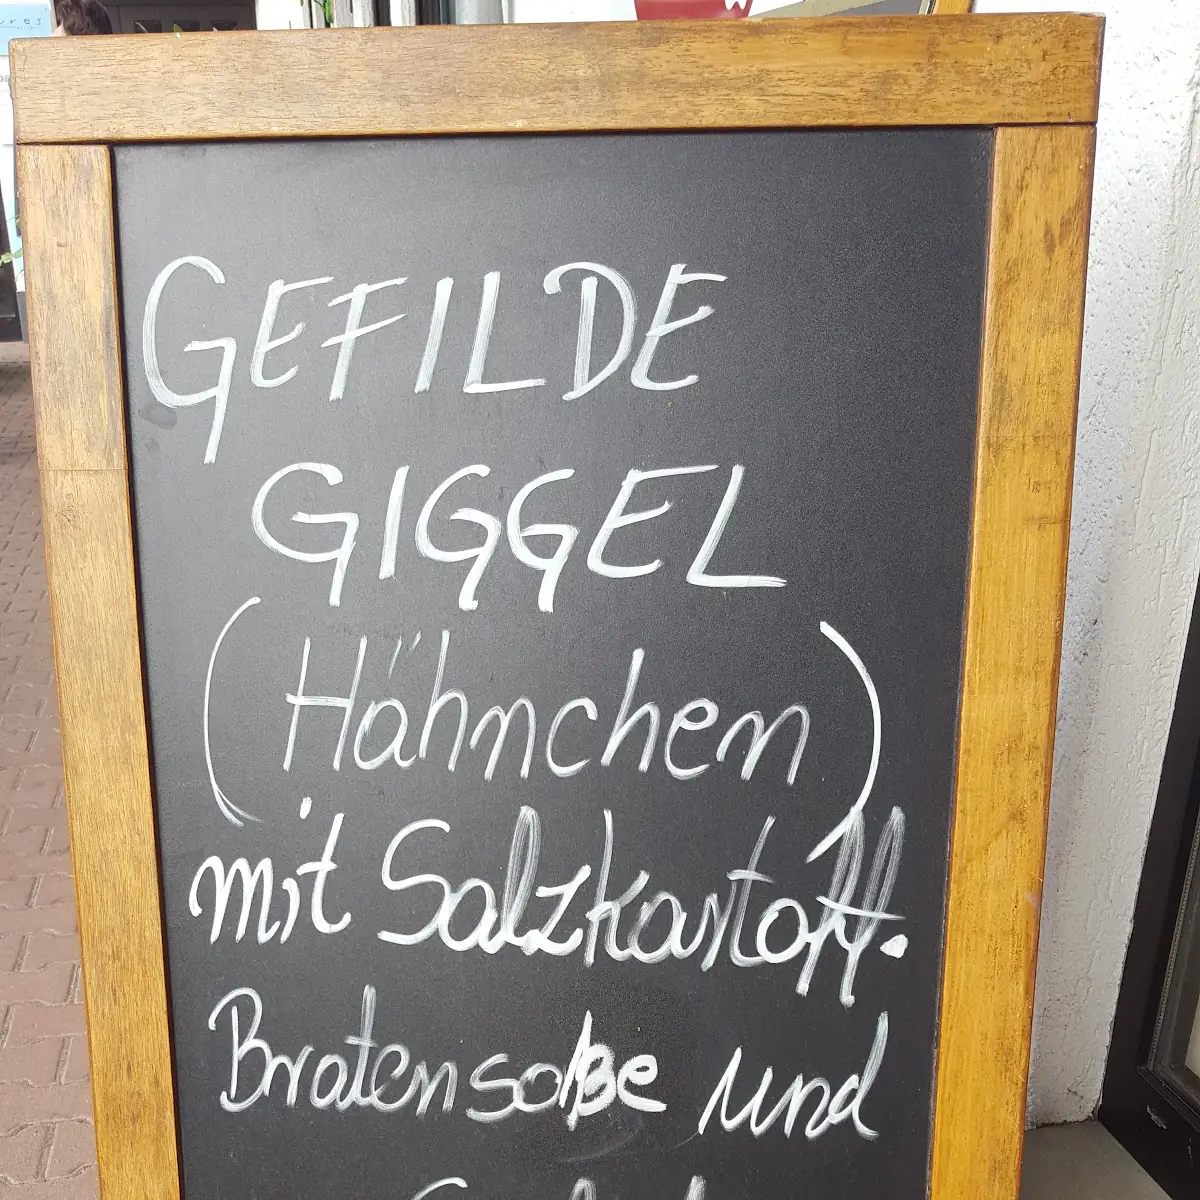 GEFILDE
GIGGEL
(Hähnchen)
mit Salzkartoff.
Bratensoße und